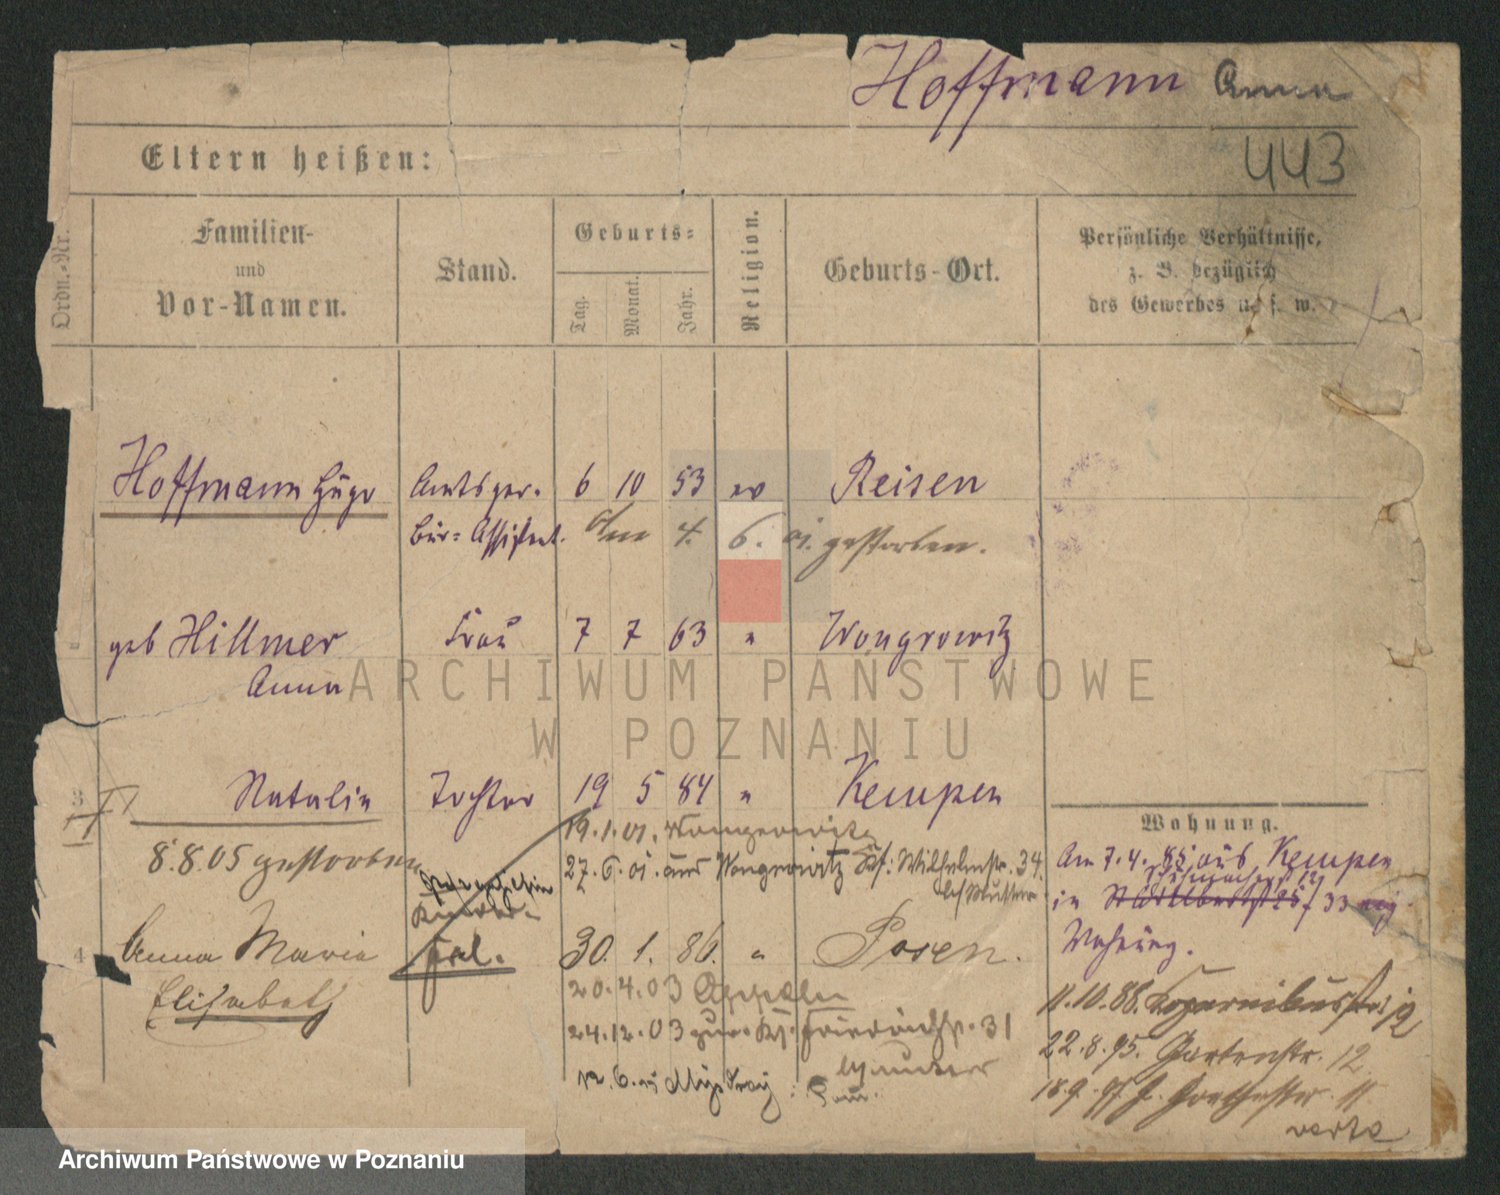 Hoffmann Anna
443
Eltern heißen:
Ordn.-Nr.
Familien-
und
Vor-Namen.
Stand.
Geburts-
Tag.
Monat.
Jahr.
Religion.
Geburts-Ort.
Persönliche Verhältnisse,
z. B. bezüglich
des Gewerbes u. s. w.
Hoffmann Hugo Amtsger. 6 10 53 ev Reisen
Bür= Assistent. Am 4. 6. 01. gestorben.
geb Hillmer Frau 7 7 63 " Wongrowitz
Anna
ARCHIWUM PAŃSTWOWE
W POZNANIU
3 Natalie Tochter 19 5 84 " Kempen
19.1.01. Wongrowitz
8.8.05 gestorben
27.6.01. aus Wongrowitz Wilhelmstr. 34.
bei Mutter
4 Anna Maria 30. 1. 86. " Posen.
Elisabeth
20.4.03
24.12.03 Friedrichstr. 31
Wohnung.
Am 7.4.85 aus Kempen
in 33
Wohnung.
11.10.88. Kopernikusstr. 12
22.8.95. Gartenstr. 12
verte
Archiwum Państwowe w Poznaniu